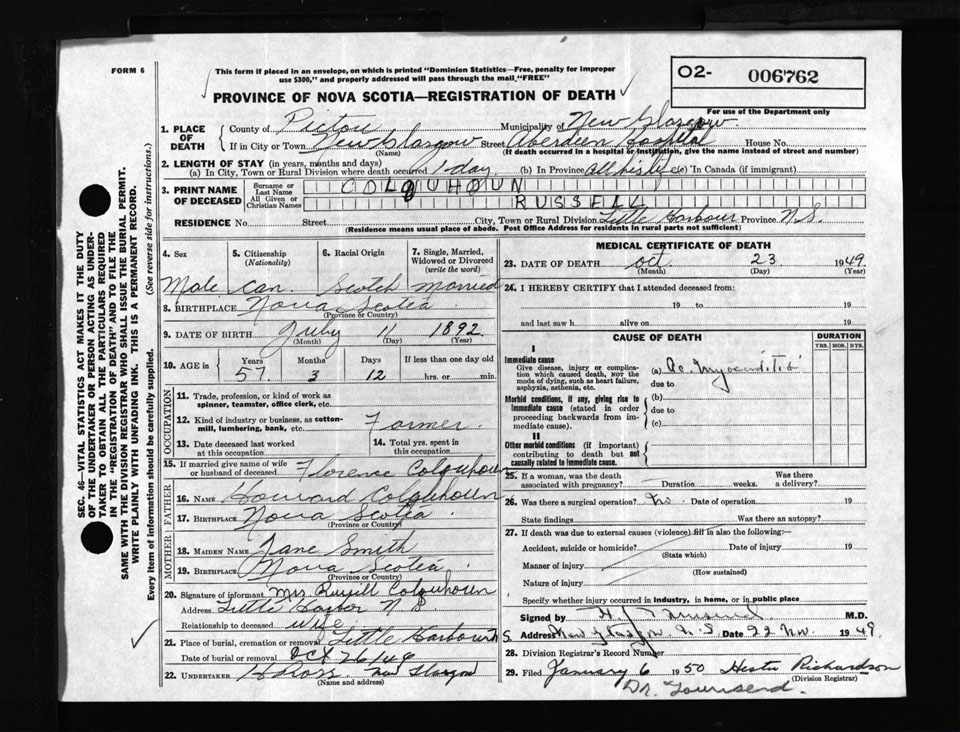 FORM 6
This form if placed in an envelope, on which is printed "Dominion Statistics—Free, penalty for improper
use $300," and properly addressed will pass through the mail "FREE"
O2- 006762
For use of the Department only
PROVINCE OF NOVA SCOTIA—REGISTRATION OF DEATH
SEC. 46—VITAL STATISTICS ACT MAKES IT THE DUTY
OF THE UNDERTAKER OR PERSON ACTING AS UNDER-
TAKER TO OBTAIN ALL THE PARTICULARS REQUIRED
IN THE "REGISTRATION OF DEATH" AND TO FILE THE
SAME WITH THE DIVISION REGISTRAR WHO SHALL ISSUE THE BURIAL PERMIT.
WRITE PLAINLY WITH UNFADING INK. THIS IS A PERMANENT RECORD.
Every item of information should be carefully supplied. (See reverse side for instructions.)
1. PLACE OF DEATH
County of Pictou Municipality of New Glasgow
If in City or Town New Glasgow Street Aberdeen Hospital House No.
(Name) (If death occurred in a hospital or institution, give the name instead of street and number)
2. LENGTH OF STAY (in years, months and days)
(a) In City, Town or Rural Division where death occurred 1 day (b) In Province All his life (c) In Canada (if immigrant)
3. PRINT NAME OF DECEASED
Surname or Last Name COLQUHOUN
All Given or Christian Names RUSSELL
RESIDENCE No. Street City, Town or Rural Division Little Harbour Province N.S.
(Residence means usual place of abode. Post Office Address for residents in rural parts not sufficient)
4. Sex 5. Citizenship (Nationality) 6. Racial Origin 7. Single, Married, Widowed or Divorced (write the word)
Male Can. Scotch married
8. BIRTHPLACE Nova Scotia
(Province or Country)
9. DATE OF BIRTH July 11 1892
(Month) (Day) (Year)
10. AGE in Years Months Days If less than one day old
57 3 12 hrs. or min.
OCCUPATION
11. Trade, profession, or kind of work as
spinner, teamster, office clerk, etc.
12. Kind of industry or business, as cotton-
mill, lumbering, bank, etc. Farmer
13. Date deceased last worked at this occupation 14. Total yrs. spent in this occupation
15. If married give name of wife
or husband of deceased Florence Colquhoun
FATHER
16. NAME Howard Colquhoun
17. BIRTHPLACE Nova Scotia
(Province or Country)
MOTHER
18. MAIDEN NAME Jane Smith
19. BIRTHPLACE Nova Scotia
(Province or Country)
20. Signature of informant Mrs Russell Colquhoun
Address Little Harbor N S
Relationship to deceased wife
21. Place of burial, cremation or removal Little Harbour
Date of burial or removal Oct 26/49
22. UNDERTAKER New Glasgow
(Name and address)
MEDICAL CERTIFICATE OF DEATH
23. DATE OF DEATH Oct. 23 1949
(Month) (Day) (Year)
24. I HEREBY CERTIFY that I attended deceased from:
19 to 19
and last saw h alive on 19
CAUSE OF DEATH DURATION
YRS. MOS. DYS.
I
Immediate cause
Give disease, injury or complica-
tion which caused death, NOT the
mode of dying, such as heart failure,
asphyxia, asthenia, etc.
(a) Ac. Myocarditis
due to
Morbid conditions, if any, giving rise to
immediate cause (stated in order
proceeding backwards from im-
mediate cause).
(b)
due to
(c)
II
Other morbid conditions (if important)
contributing to death but not
causally related to immediate cause.
25. If a woman, was the death Was there
associated with pregnancy? Duration weeks. a delivery?
26. Was there a surgical operation? no Date of operation 19
State findings Was there an autopsy?
27. If death was due to external causes (violence) fill in also the following:—
Accident, suicide or homicide? Date of injury 19
(State which)
Manner of injury
(How sustained)
Nature of injury
Specify whether injury occurred in industry, in home, or in public place
Signed by Townsend M.D.
Address New Glasgow N.S. Date 22 Nov. 1949
28. Division Registrar's Record Number
29. Filed January 6 1950 Hester Richardson
(Division Registrar)
Dr. Townsend.